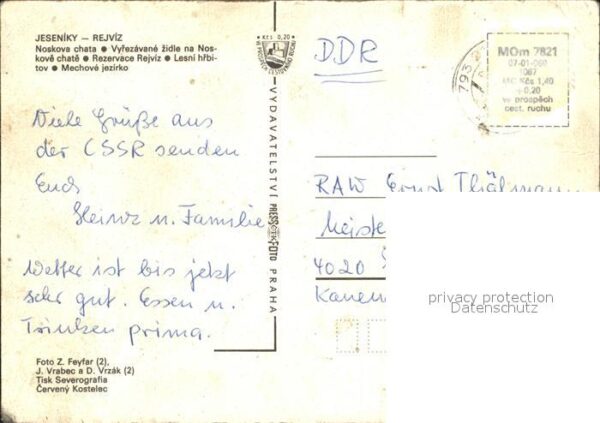 JESENÍKY — REJVÍZ
Noskova chata ● Vyřezávané židle na Nos-
kově chatě ● Rezervace Rejvíz ● Lesní hřbi-
tov ● Mechové jezírko
Kčs 0,20
VE PROSPĚCH CESTOVNÍHO RUCHU
DDR
793
MOm 7821
07-01-060
1087
MC Kčs 1,40
+0,20
ve prospěch
cest. ruchu
Viele Grüße aus
der CSSR senden
Euch
Heinz u. Familie
Wetter ist bis jetzt
sehr gut. Essen u.
Trinken prima.
VYDAVATELSTVÍ PRESSFOTO PRAHA
RAW Ernst Thälmann
Meiste
4020
Kanen
privacy protection
Datenschutz
Foto Z. Feyfar (2),
J. Vrabec a D. Vrzák (2)
Tisk Severografia
Červený Kostelec